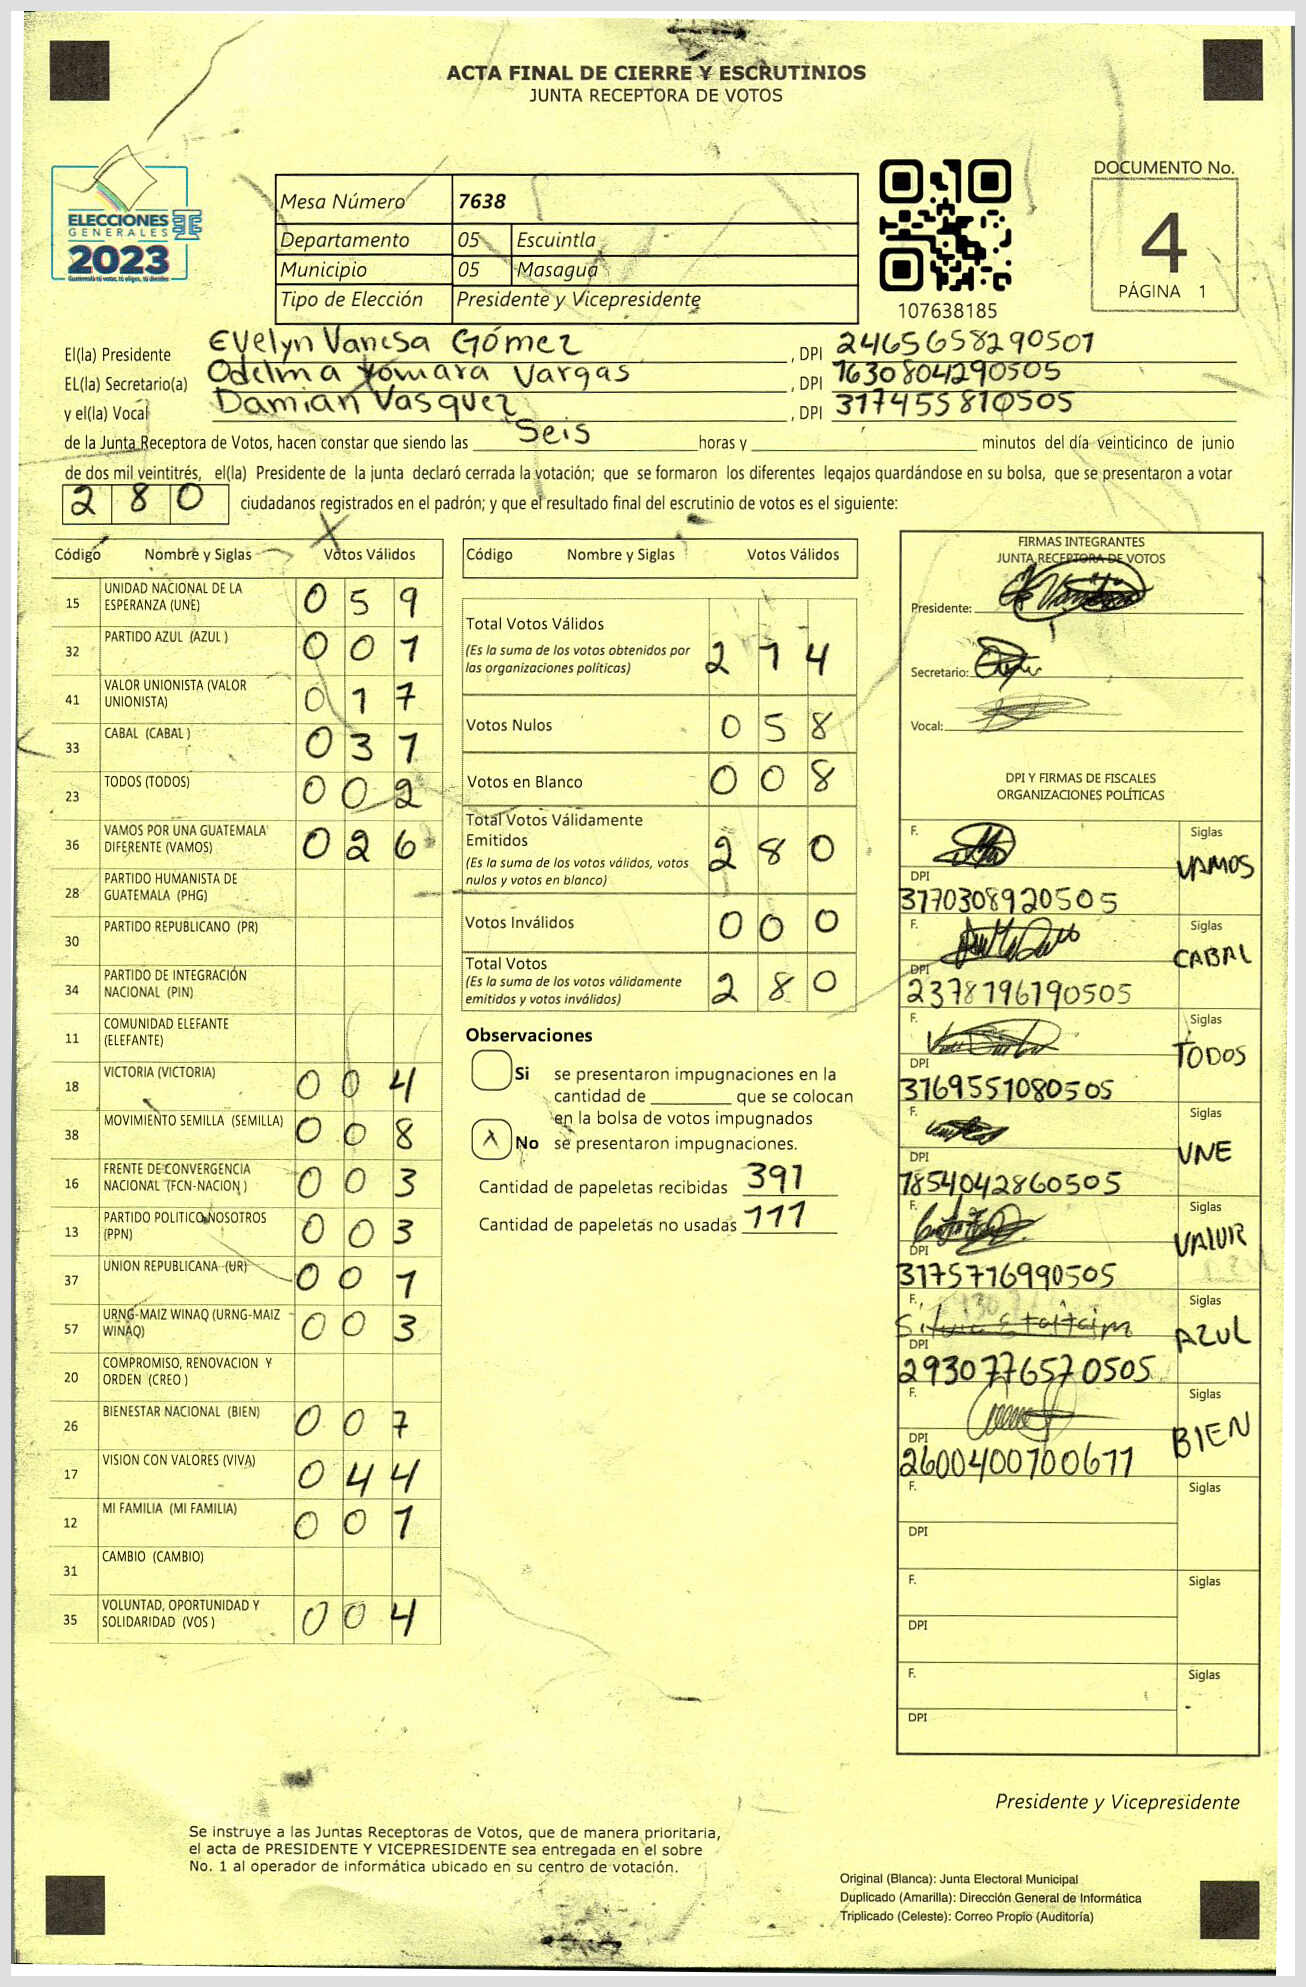 ACTA FINAL DE CIERRE Y ESCRUTINIOS
JUNTA RECEPTORA DE VOTOS
ELECCIONES
GENERALES
2023
Guatemala tú votas, tú eliges, tú decides
Mesa Número 7638
Departamento 05 Escuintla
Municipio 05 Masagua
Tipo de Elección Presidente y Vicepresidente
107638185
DOCUMENTO No.
4
PÁGINA 1
El(la) Presidente Evelyn Vanesa Gómez, DPI 2465658290501
EL(la) Secretario(a) Odelma Xomara Vargas, DPI 1630804290505
y el(la) Vocal Damian Vasquez, DPI 317455810505
de la Junta Receptora de Votos, hacen constar que siendo las Seis horas y minutos del día veinticinco de junio
de dos mil veintitrés, el(la) Presidente de la junta declaró cerrada la votación; que se formaron los diferentes legajos guardándose en su bolsa, que se presentaron a votar
280 ciudadanos registrados en el padrón; y que el resultado final del escrutinio de votos es el siguiente:
Código Nombre y Siglas Votos Válidos
15 UNIDAD NACIONAL DE LA ESPERANZA (UNE) 059
32 PARTIDO AZUL (AZUL ) 001
41 VALOR UNIONISTA (VALOR UNIONISTA) 017
33 CABAL (CABAL ) 031
23 TODOS (TODOS) 002
36 VAMOS POR UNA GUATEMALA DIFERENTE (VAMOS) 026
28 PARTIDO HUMANISTA DE GUATEMALA (PHG)
30 PARTIDO REPUBLICANO (PR)
34 PARTIDO DE INTEGRACIÓN NACIONAL (PIN)
11 COMUNIDAD ELEFANTE (ELEFANTE)
18 VICTORIA (VICTORIA) 004
38 MOVIMIENTO SEMILLA (SEMILLA) 008
16 FRENTE DE CONVERGENCIA NACIONAL (FCN-NACION ) 003
13 PARTIDO POLITICO NOSOTROS (PPN) 003
37 UNION REPUBLICANA (UR) 001
57 URNG-MAIZ WINAQ (URNG-MAIZ WINAQ) 003
20 COMPROMISO, RENOVACION Y ORDEN (CREO )
26 BIENESTAR NACIONAL (BIEN) 007
17 VISION CON VALORES (VIVA) 044
12 MI FAMILIA (MI FAMILIA) 001
31 CAMBIO (CAMBIO)
35 VOLUNTAD, OPORTUNIDAD Y SOLIDARIDAD (VOS ) 004
Código Nombre y Siglas Votos Válidos
Total Votos Válidos 214
(Es la suma de los votos obtenidos por
las organizaciones políticas)
Votos Nulos 058
Votos en Blanco 008
Total Votos Válidamente
Emitidos 280
(Es la suma de los votos válidos, votos
nulos y votos en blanco)
Votos Inválidos 000
Total Votos 280
(Es la suma de los votos válidamente
emitidos y votos inválidos)
Observaciones
Si se presentaron impugnaciones en la
cantidad de que se colocan
en la bolsa de votos impugnados
X No se presentaron impugnaciones.
Cantidad de papeletas recibidas 391
Cantidad de papeletas no usadas 111
FIRMAS INTEGRANTES
JUNTA RECEPTORA DE VOTOS
Presidente:
Secretario:
Vocal:
DPI Y FIRMAS DE FISCALES
ORGANIZACIONES POLÍTICAS
F. Siglas VAMOS
DPI 3170308920505
F. Siglas CABAL
DPI 2378196190505
F. Siglas TODOS
DPI 3169551080505
F. Siglas UNE
DPI 1854042860505
F. Siglas VALOR
DPI 3175716990505
F. Siglas AZUL
DPI 2930776570505
F. Siglas BIEN
DPI 2600400700611
F. Siglas
DPI
F. Siglas
DPI
F. Siglas
DPI
Presidente y Vicepresidente
Se instruye a las Juntas Receptoras de Votos, que de manera prioritaria,
el acta de PRESIDENTE Y VICEPRESIDENTE sea entregada en el sobre
No. 1 al operador de informática ubicado en su centro de votación.
Original (Blanca): Junta Electoral Municipal
Duplicado (Amarilla): Dirección General de Informática
Triplicado (Celeste): Correo Propio (Auditoría)